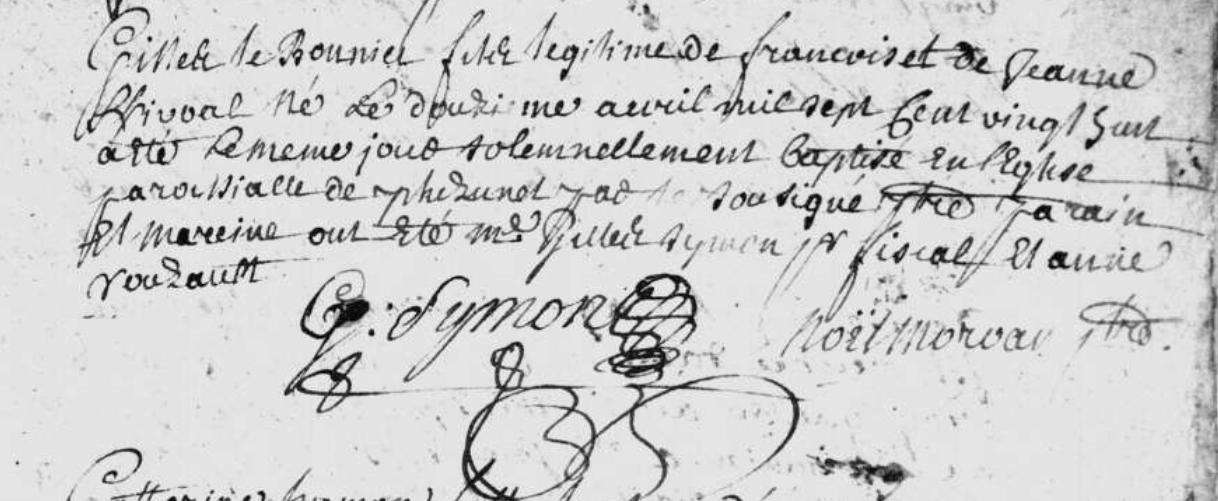 Gilles le Bonniec fils legitime de francois et de Jeanne
Rivoal né Le douziême auril mil sept Cent vingt huit
a eté Le meme jour solemnellement baptisé En l'Eglise
paroissialle de par le sousigné ptre parain
Et mareine ont eté mr Gilles Symon pr fiscal Et anne
G. Symon
Noël Morvan ptre.